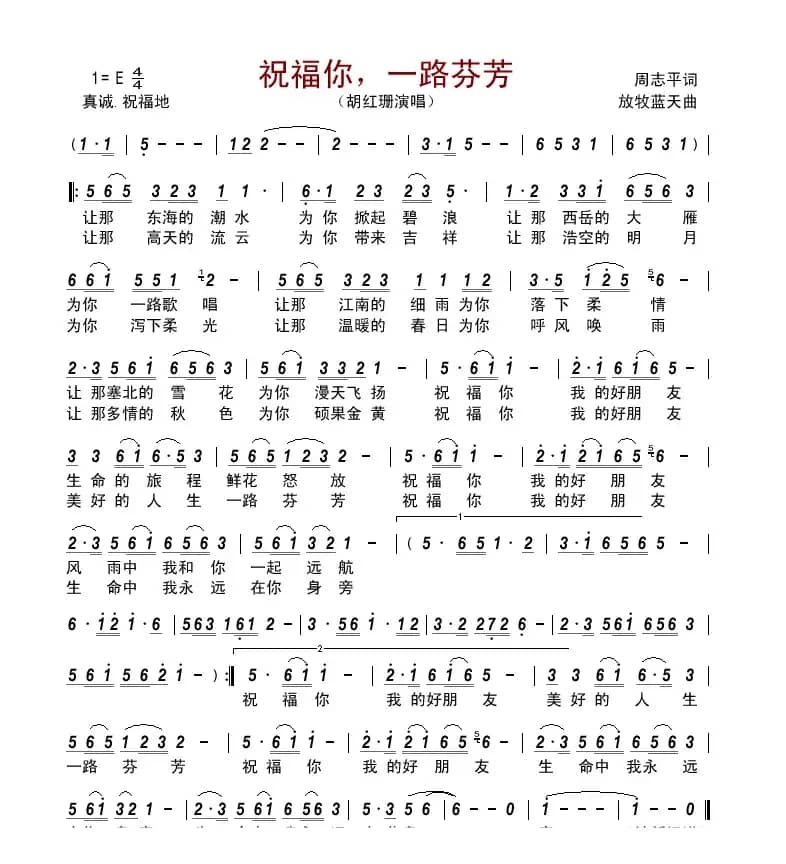 祝福你，一路芬芳
1=E 4/4
真诚.祝福地
（胡红珊演唱）
周志平词
放牧蓝天曲
(1·1 | 5--- | 1 2 2-- | 2--- | 3·1 5-- | 6 5 3 1 | 6 5 3 1) |
‖: 5 6 5 3 2 3 1 1· | 6·1 2 3 2 3 5· | 1·2 3 3 1 6 5 6 3 |
让那 东海的 潮 水 为 你 掀起 碧 浪 让 那 西岳的 大 雁
让那 高天的 流 云 为 你 带来 吉 祥 让 那 浩空的 明 月
6 6 1 5 5 1 1 2 - | 5 6 5 3 2 3 1 1 1 2 | 3·5 1 2 5 5 6 - |
为你 一路歌 唱 让那 江南的 细 雨为你 落 下 柔 情
为你 泻下柔 光 让那 温暖的 春 日为你 呼 风 唤 雨
2·3 5 6 1 6 5 6 3 | 5 6 1 3 3 2 1 - | 5·6 1 1 - | 2·1 6 1 6 5 - |
让 那塞北的 雪 花 为你 漫天飞 扬 祝 福 你 我 的好朋 友
让 那多情的 秋 色 为你 硕果金 黄 祝 福 你 我 的好朋 友
3 3 6 1 6·5 | 5 6 5 1 2 3 2 - | 5·6 1 1 - | 2·2 1 6 5 5 6 - |
生 命 的 旅 程 鲜花 怒 放 祝 福 你 我 的好 朋 友
美 好 的 人 生 一路 芬 芳 祝 福 你 我 的好 朋 友
1
2·3 5 6 1 6 5 6 3 | 5 6 1 3 2 1 - | (5· 6 5 1·2 | 3·1 6 5 6 5 |
风 雨中 我和 你 一起 远 航
生 命中 我永 远 在你 身 旁
6·1 2 1·6 | 5 6 3 1 6 1 2 - | 3·5 6 1 1·2 | 3·2 2 7 2 6 - | 2·3 5 6 1 6 5 6 3 |
2
5 6 1 5 6 2 1 - ):‖ 5·6 1 1 - | 2·1 6 1 6 5 - | 3 3 6 1 6·5 |
祝 福 你 我 的好朋 友 美 好 的 人 生
5 6 5 1 2 3 2 - | 5·6 1 1 - | 2·2 1 6 5 5 6 - | 2·3 5 6 1 6 5 6 3 |
一路 芬 芳 祝 福 你 我 的好 朋 友 生 命中 我永 远
5 6 1 3 2 1 - | 2·3 5 6 1 6 5 6 3 | 5 6 5 2 3 5 - | 6--0 | 1--- | 1--0 ‖